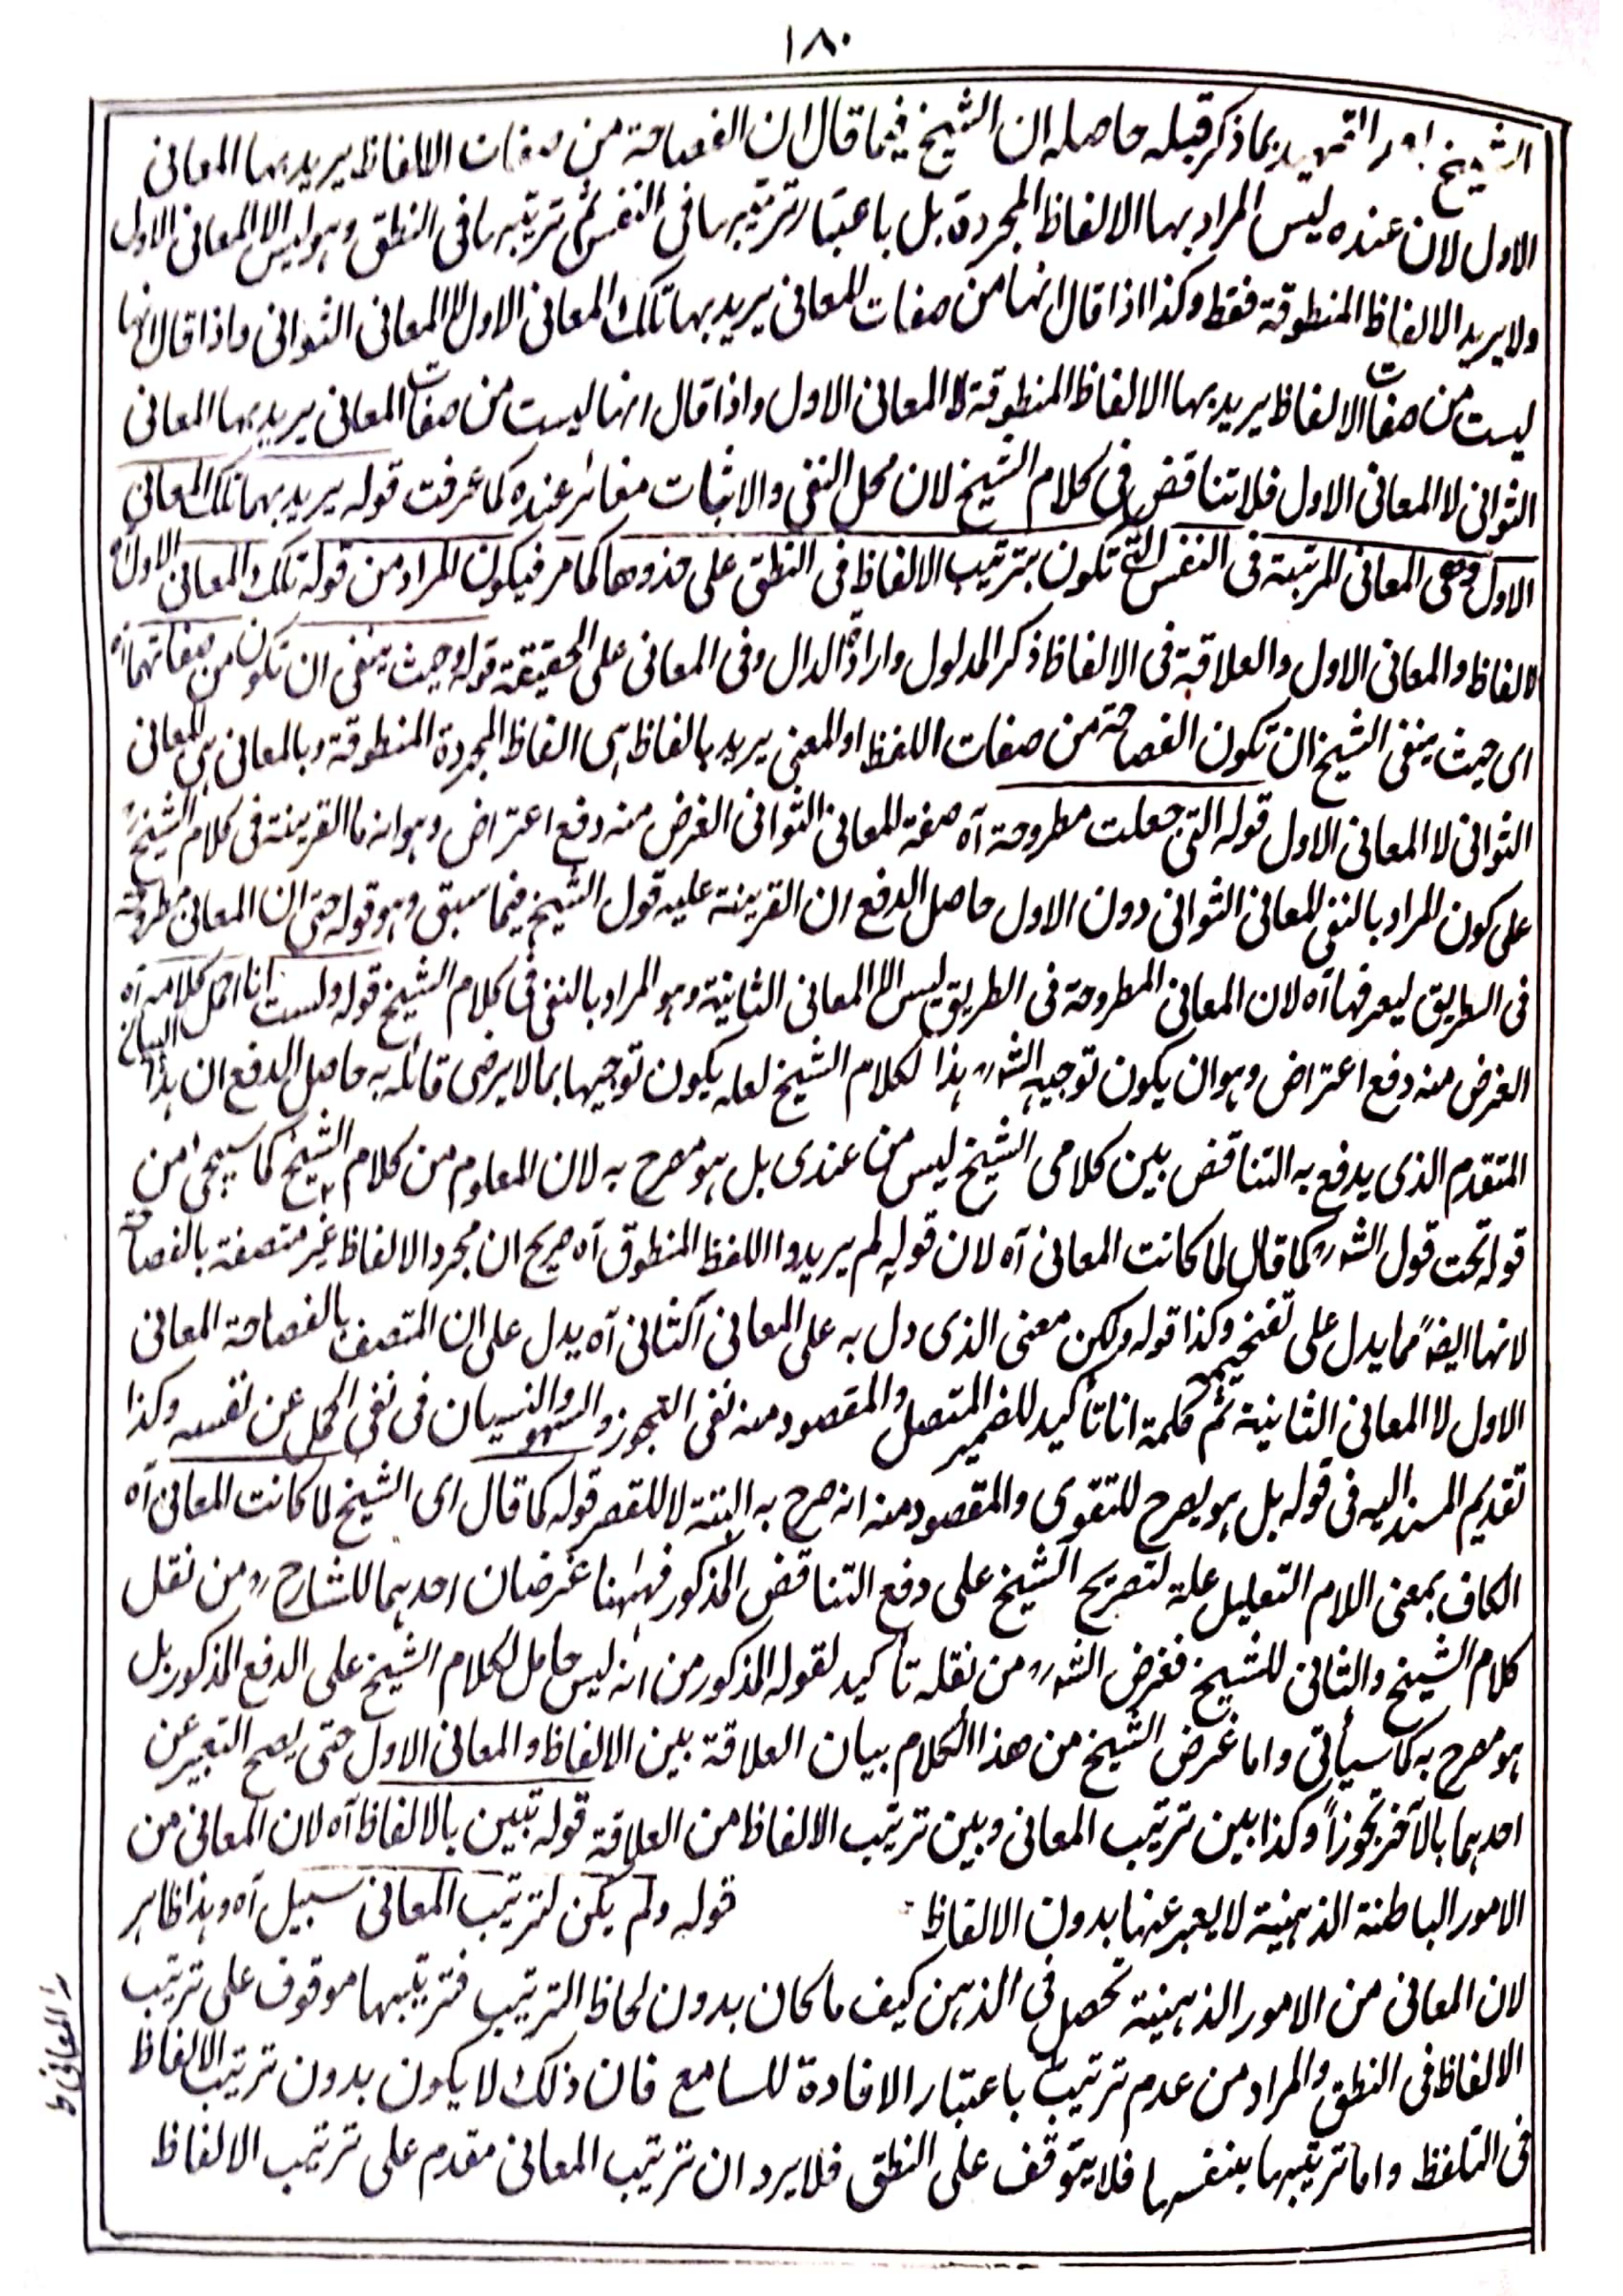 ١٨٠
الشيخ بعد التمهيد بما ذكر قبله حاصله ان الشيخ فيما قال ان الفصاحة من صفات الالفاظ يريد بها المعانى
الاول لان عنده ليس المراد بها الالفاظ المجردة بل باعتبار ترتيبها فى النفس ثم ترتيبها فى النطق وهو ليس الا المعانى الاول
ولا يريد الالفاظ المنطوقة فقط وكذا اذا قال انها من صفات المعانى يريد بها تلك المعانى الاول لا المعانى الثوانى واذا قال انها
ليست من صفات الالفاظ يريد بها الالفاظ المنطوقة لا المعانى الاول واذا قال انها ليست من صفات المعانى يريد بها المعانى
الثوانى لا المعانى الاول فلا تناقض فى كلام الشيخ لان محل النفى والاثبات مغائر عنده كما عرفت قوله يريد بهما تلك المعانى
الاول وهى المعانى المرتبة فى النفس التى تكون بترتيب الالفاظ فى النطق على حذوها كما مر فيكون المراد من قوله تلك المعانى الاول
الالفاظ والمعانى الاول والعلاقة فى الالفاظ ذكر المدلول وارادة الدال وفى المعانى على الحقيقة قوله وحيث ينفى ان تكون من صفاتهما آه
اى حيث ينفى الشيخ ان تكون الفصاحة من صفات اللفظ او المعنى يريد بالفاظ هى الفاظ المجردة المنطوقة وبالمعانى هى المعانى
الثوانى لا المعانى الاول قوله التى جعلت مطروحة آه صفة للمعانى الثوانى الغرض منه دفع اعتراض وهو انه ما القرينة فى كلام الشيخ
على كون المراد بالنفى المعانى الثوانى دون الاول حاصل الدفع ان القرينة عليه قول الشيخ فيما سبق وهو قوله حتى ان المعانى مطروحة
فى الطريق ليعرفها آه لان المعانى المطروحة فى الطريق ليس الا المعانى الثانية وهو المراد بالنفى فى كلام الشيخ قوله ولست انا احمل كلامه آه
الغرض منه دفع اعتراض وهو ان يكون توجيه الشارح هذا لكلام الشيخ لعله يكون توجيها بما لا يرضى قائله به حاصل الدفع ان هذا البيان
المتقدم الذى يدفع به التناقض بين كلامى الشيخ ليس من عندى بل هو مصرح به لان المعلوم من كلام الشيخ كما سيجئ من
قوله تحت قول الشارح كما قال لما كانت المعانى آه لان قوله لم يريدوا اللفظ المنطوق آه صريح ان مجرد الالفاظ غير متصفة بالفصاحة
لانها ايضا مما يدل على تفخيم وكذا قوله ولكن معنى الذى دل به على المعانى الثانى آه يدل على ان المتصف بالفصاحة المعانى
الاول لا المعانى الثانية ثم كلمة انا تأكيد للضمير المتصل والمقصود منه نفى التجوز والسهو والنسيان فى نفى الحمل عن نفسه وكذا
تقديم المسند اليه فى قوله بل هو يصرح للتقوى والمقصود منه انه صرح به البتة لا للقصر قوله كما قال اى الشيخ لما كانت المعانى آه
الكاف بمعنى اللام التعليل علة لتصريح الشيخ على دفع التناقض المذكور فههنا غرضان احدهما للشارح من نقل
كلام الشيخ والثانى للشيخ فغرض الشارح من نقله تأكيد لقوله المذكور من انه ليس حامل لكلام الشيخ على الدفع المذكور بل
هو مصرح به كما سيأتى واما غرض الشيخ من هذا الكلام بيان العلاقة بين الالفاظ والمعانى الاول حتى يصح التعبير عن
احدهما بالآخر تجوزاً وكذا بين ترتيب المعانى وبين ترتيب الالفاظ من العلاقة قوله تبين بالالفاظ آه لان المعانى من
الامور الباطنة الذهنية لا يعبر عنها بدون الالفاظ قوله ولم يكن لترتيب المعانى سبيل آه وهذا ظاهر
لان المعانى من الامور الذهنية تحصل فى الذهن كيف ما كان بدون لحاظ الترتيب فترتيبها موقوف على ترتيب
الالفاظ فى النطق والمراد من عدم ترتيب باعتبار الافادة للسامع فان ذلك لا يكون بدون ترتيب الالفاظ
فى التلفظ واما ترتيبها بنفسها فلا يتوقف على النطق فلا يرد ان ترتيب المعانى مقدم على ترتيب الالفاظ
المعانى ط